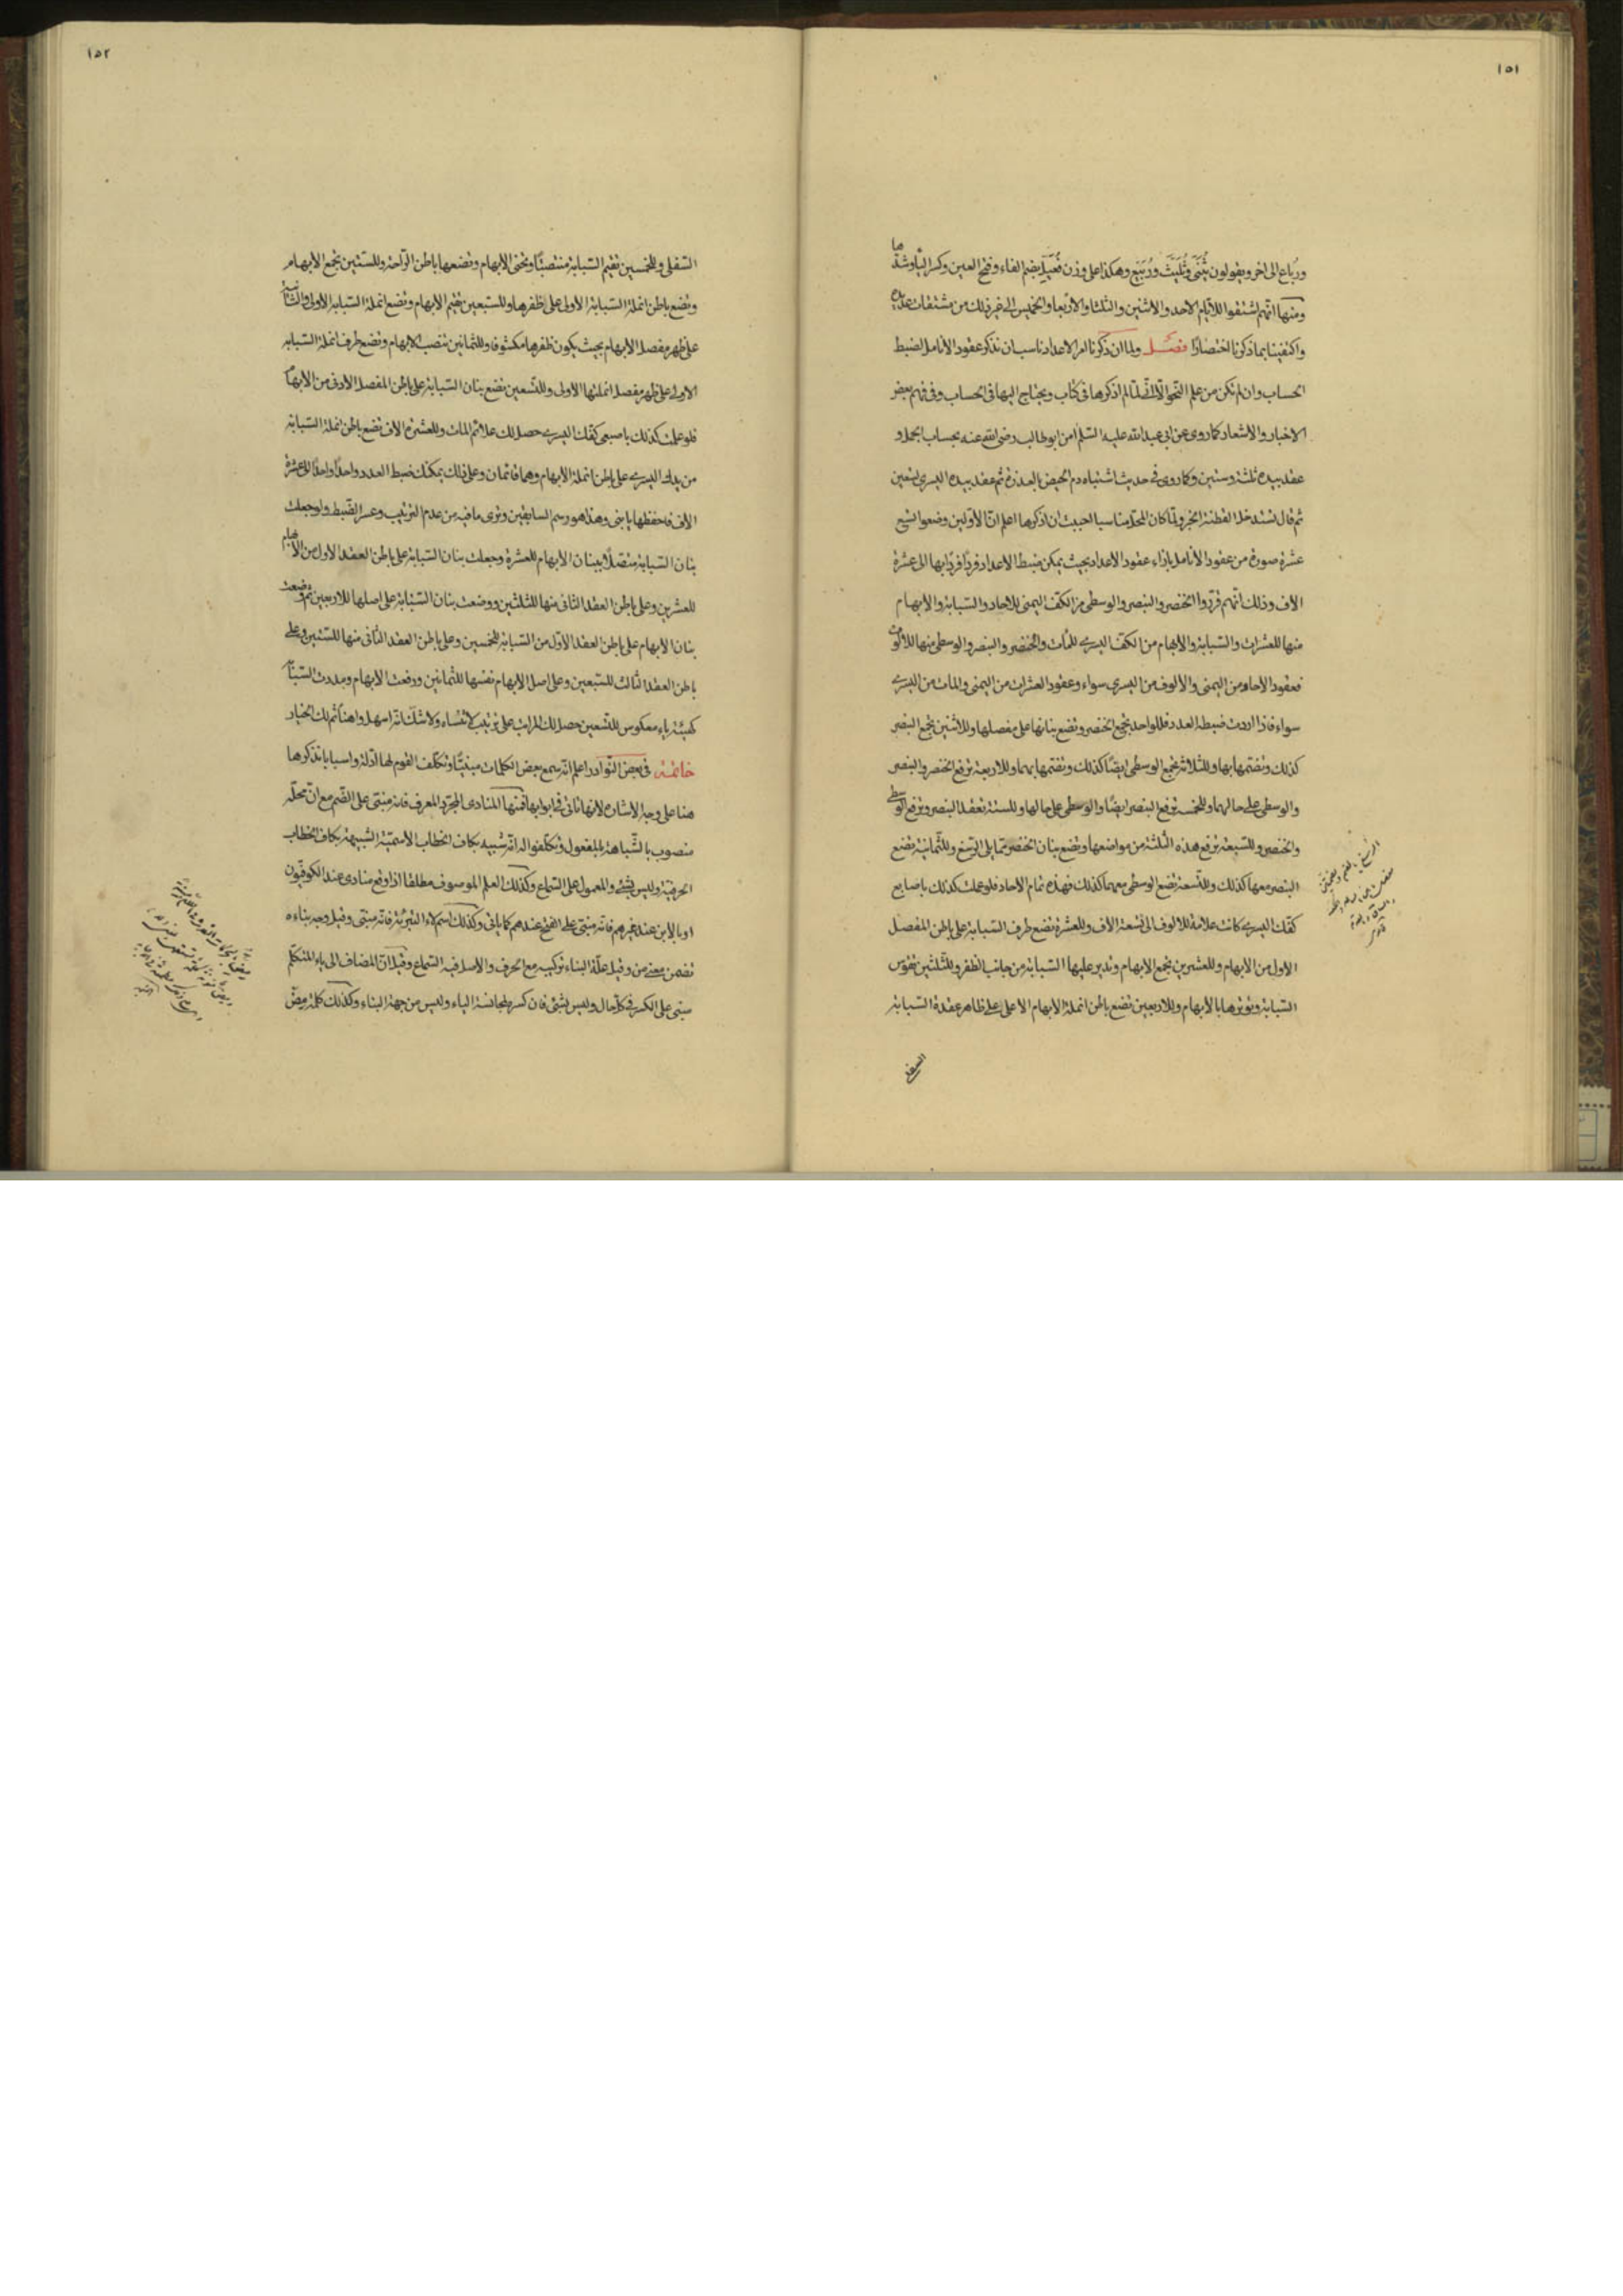 ١٥١
ورباع الى اخر ويقولون ثُنَيَّ وثُلَيِّث ورُبَيِّع وهكذا على وزن فُعَيِّل بضم الفاء وفتح العين وكسر الياء وشدّها
ومنها انهم اشتقوا للايام الاحد والاثنين والثلثا والاربعا والخميس الى غير ذلك من مشتقات عديدة
واكتفينا بما ذكرنا اختصارًا فصل ولما ان ذكرنا امر الاعداد ناسب ان نذكر عقود الانامل لضبط
الحساب وان لم تكن من علم النحو الّا انّى لمّا لم اذكرها فى كتاب ويحتاج اليها فى الحساب وفى فهم بعض
الاخبار والاشعار كما روى عن ابى عبدالله عليه السّلم امن ابوطالب رضى الله عنه بحساب الجمل و
عقد بيده ثلثة وستين وكما روى فى حديث اشتباه دم الحيض بالعذرة ثم عقد بيده اليسرى تسعين
ثم قال تستدخل القطنة الخبر ولمّا كان المحلّ مناسبا احببت ان اذكرها اعلم انّ الاولين وضعوا تسع
عشرة صورة من عقود الانامل بازاء عقود الاعداد بحيث يمكن ضبط الاعداد فردًا فردًا بها الى عشرة
الاف وذلك انهم قرّروا الخنصر والبنصر والوسطى من الكف اليمنى للاحاد والسبابة والابهام
منها للعشرات والسبابة والابهام من الكف اليسرى للمآت والخنصر والبنصر والوسطى منها للالوف
فعقود الاحاد من اليمنى والالوف من اليسرى سواء وعقود العشرات من اليمنى والمات من اليسرى
سواء فاذا اردت ضبط العدد فللواحد تجمع الخنصر وتضع بنانها على مفصلها وللاثنين تجمع البنصر
كذلك وتضمّها بها وللثلاثة تجمع الوسطى ايضًا كذلك وتضمّها بهما وللاربعة ترفع الخنصر والبنصر
والوسطى على حالهما وللخمسة ترفع البنصر ايضًا والوسطى على حالها وللستة تعقد البنصر وترفع الوسطى
والخنصر وللسبعة ترفع هذه الثلثة من مواضعها وتضع بنان الخنصر ممّا يلى الرسغ وللثمانية تضع
البنصر معها كذلك وللتسعة تضع الوسطى معهما كذلك فهذه تمام الاحاد فلو عملت كذلك باصابع
كفّك اليسرى كانت علامة للالوف الى تسعة الاف وللعشرة تضع طرف السبابة على باطن المفصل
الاول من الابهام وللعشرين تجمع الابهام وتدير عليها السبابة من جانب الظفر وللثلثين تقوّس
السبابة وتوترها بالابهام وللاربعين تضع باطن انملة الابهام الاعلى على ظاهر عقدة السبابة
السفلى
١٥٢
السّفلى وللخمسين تقيم السبابة منتصبًا وتحنى الابهام وتضعها باطن الراحة وللستين تجمع الابهام
وتضع باطن انملة السبابة الاولى على ظفرها وللسبعين تقيم الابهام وتضع انملة السبابة الاولى والثانية
على ظهر مفصل الابهام بحيث يكون ظفرها مكشوفا وللثمانين تنصب الابهام وتضع طرف انملة السبابة
الاولى على ظهر مفصل انملتها الاولى وللتسعين تضع بنان السبابة على باطن المفصل الادنى من الابهام
فلو عملت كذلك باصبعى كفّك اليسرى حصل لك علائم المات وللعشرة الاف تضع باطن انملة السبابة
من يدك اليسرى على باطن انملة الابهام وهما قائمان وعلى ذلك يمكنك ضبط العدد واحدًا واحدًا الى عشرة
الاف فاحفظها يا بنى وهذا هو رسم السابقين وترى ما فيه من عدم الترتيب وعسر الضبط ولو جعلت
بنان السبابة متصلًا ببنان الابهام للعشرة وجعلت بنان السبابة على باطن العقد الاول من الابهام
للعشرين وعلى باطن العقد الثانى منها للثلثين ووضعت بنان السّبّابة على اصلها للاربعين ثم وضعت
بنان الابهام على باطن العقد الاول من السبابة للخمسين وعلى باطن العقد الثانى منها للستين وعلى
باطن العقد الثالث للسبعين وعلى اصل الابهام نفسها للثمانين ورفعت الابهام ومددت السّبّابة
كهيئة ياء معكوس للتسعين حصل لك المراتب على ترتيب لا تنساه ولا شكّ انّه اسهل واهنأ ثم لك الخيار
خاتمة فى بعض النوادر اعلم انّه سمع بعض الكلمات مبنيًّا وتكلّف القوم لها ادّلة واسبابا نذكرها
هنا على وجه الاشارة لانها تاتى فى ابوابها فمنها المنادى المجرّد المعرف فانه مبنى على الضم مع انّ محلّه
منصوب بالشباهة بالمفعول وتكلّفوا له انّه شبيه بكاف الخطاب الاسميّة الشبيهة بكاف الخطاب
الحرفيّة وليس بشئ والمعمول على السّماع وكذلك العلم الموسوف مطلقا اذا وقع منادى عند الكوفيّون
او بالابن عند غيرهم فانه مبنى على الفتح عندهم كما ياتى وكذلك اسم لاء التبرئة فانّه مبنى وقيل وجه بناءه
تضمن معنى من وقيل علّة البناء تركيبه مع الحرف والاصل فيه السّماع وقيل انّ المضاف الى ياء المتكلّم
مبنى على الكسر فى كلّ حال وليس بشئ فان كسره لمجانسة الياء وليس من جهة البناء وكذلك كلمة مِضّ